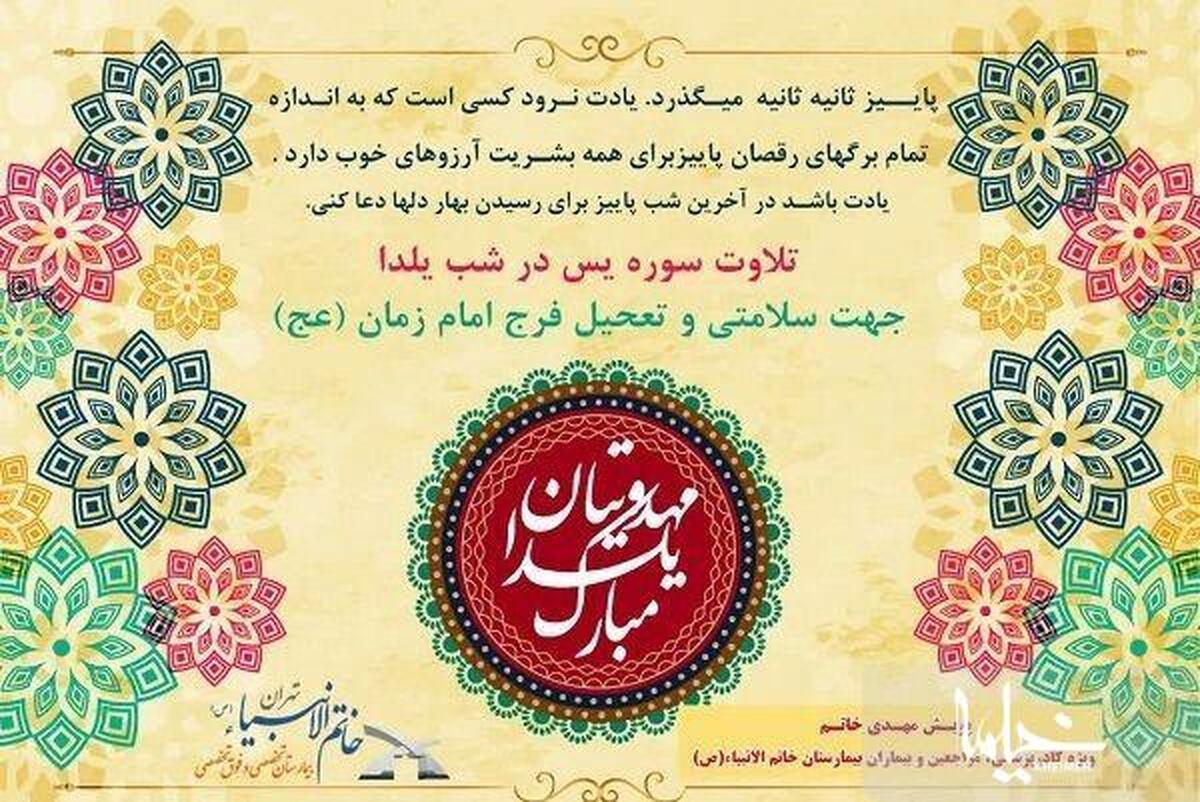 پاییز ثانیه ثانیه میگذرد. یادت نرود کسی است که به اندازه
تمام برگهای رقصان پاییزبرای همه بشریت آرزوهای خوب دارد .
یادت باشد در آخرین شب پاییز برای رسیدن بهار دلها دعا کنی.
تلاوت سوره یس در شب یلدا
جهت سلامتی و تعحیل فرج امام زمان (عج)
مهدویتان
یلدا
مبارک
پویش مهدی خاتم
ویژه کادر مراجعین و بیماران بیمارستان خاتم الانبیاء(ص)
تهران
خاتم الانبیاء (ص)
بیمارستان تخصصی و فوق تخصصی